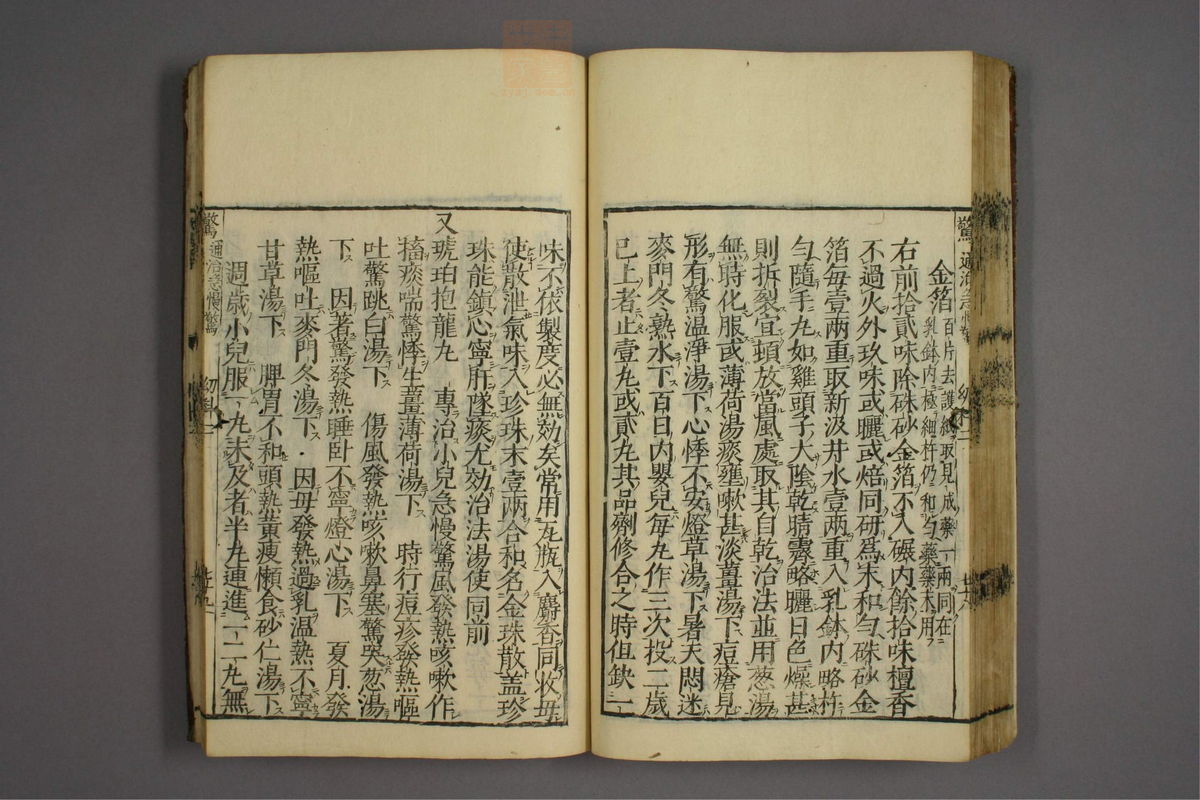 驚 通治急慢驚
金箔百片去護紙取見成藥一兩同在乳鉢内極細杵仍和勻藥藥末用
右前拾貳味除硃砂金箔不入碾内餘拾味檀香
不過火外玖味或曬或焙同研爲末和勻硃砂金
箔每壹兩重取新汲井水壹兩重入乳鉢内略杵
勻隨手丸如雞頭子大陰乾晴霽略曬日色燥甚
則拆裂宜頓放當風處取其自乾治法並用葱湯
無時化服或薄荷湯痰壅嗽甚淡薑湯下痘瘡見
形有驚温淨湯下心悸不安燈草湯下暑天悶迷
麥門冬熟水下百日内嬰兒每丸作三次投二歲
已上者止壹丸或貳丸其品劑修合之時但缺一
味不依製度必無効矣常用瓦瓶入麝香同收毋
使散泄氣味入珍珠末壹兩合和名金珠散盖珍
珠能鎮心寧肝墜痰尤効治法湯使同前
又琥珀抱龍丸 專治小兒急慢驚風發熱咳嗽作
搐痰喘驚悸生薑薄荷湯下 時行痘疹發熱嘔
吐驚跳白湯下 傷風發熱咳嗽鼻塞驚哭葱湯
下 因著驚發熱睡卧不寧燈心湯下 夏月發
熱嘔吐麥門冬湯下 因毋發熱過乳温熱不寧
甘草湯下 脾胃不和頭熱黄瘦懶食砂仁湯下
週歲小兒服一丸未及者半丸連進一二丸無
驚 通治急慢驚 幼科